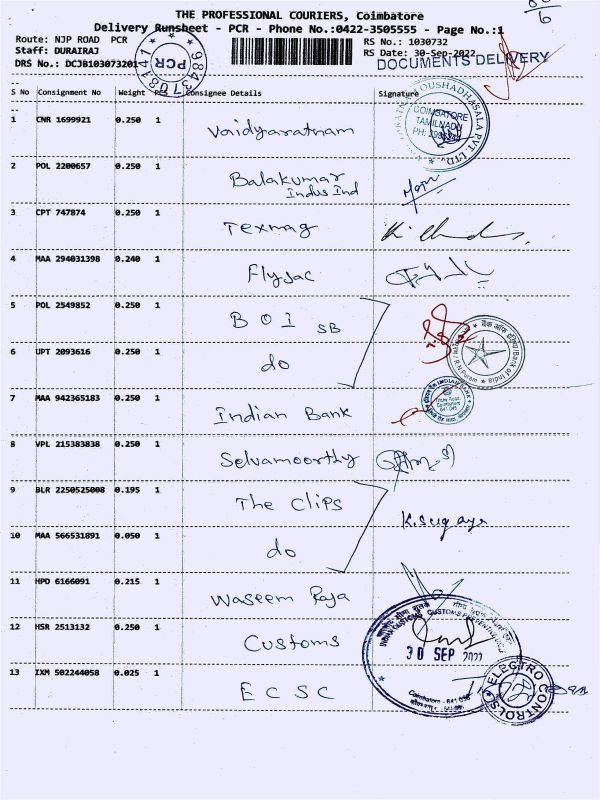 THE PROFESSIONAL COURIERS, Coimbatore
Delivery Runsheet - PCR - Phone No.:0422-3505555 - Page No.:1
Route: NJP ROAD PCR
RS No.: 1030732
Staff: DURAIRAJ
RS Date: 30-Sep-2022
DRS No.: DCJB103073201
DOCUMENTS DELIVERY
PCR
9843708141
S No Consignment No Weight Pcs Consignee Details Signature
COIMBATORE
TAMILNADU
1 CNR 1699921 0.250 1 Vaidyaratnam
2 POL 2200657 0.250 1 Balakumar
Indus Ind
3 CPT 747874 0.250 1 Texmag
4 MAA 294031398 0.240 1 Flyjac
5 POL 2549852 0.250 1 B O I SB
6 UPT 2093616 0.250 1 do
Bank of India
R.N. Puram
7 MAA 942365183 0.250 1 Indian Bank
INDIAN BANK
8 VPL 215383838 0.250 1 Selvamoorthy
9 BLR 2250525008 0.195 1 The Clips
K. Sugaya
10 MAA 566531891 0.050 1 do
11 HPD 6166091 0.215 1 Waseem Raja
12 HSR 2513132 0.250 1 Customs
30 SEP 2022
13 IXM 502244058 0.025 1 E C S C
ELECTRO CONTROLS